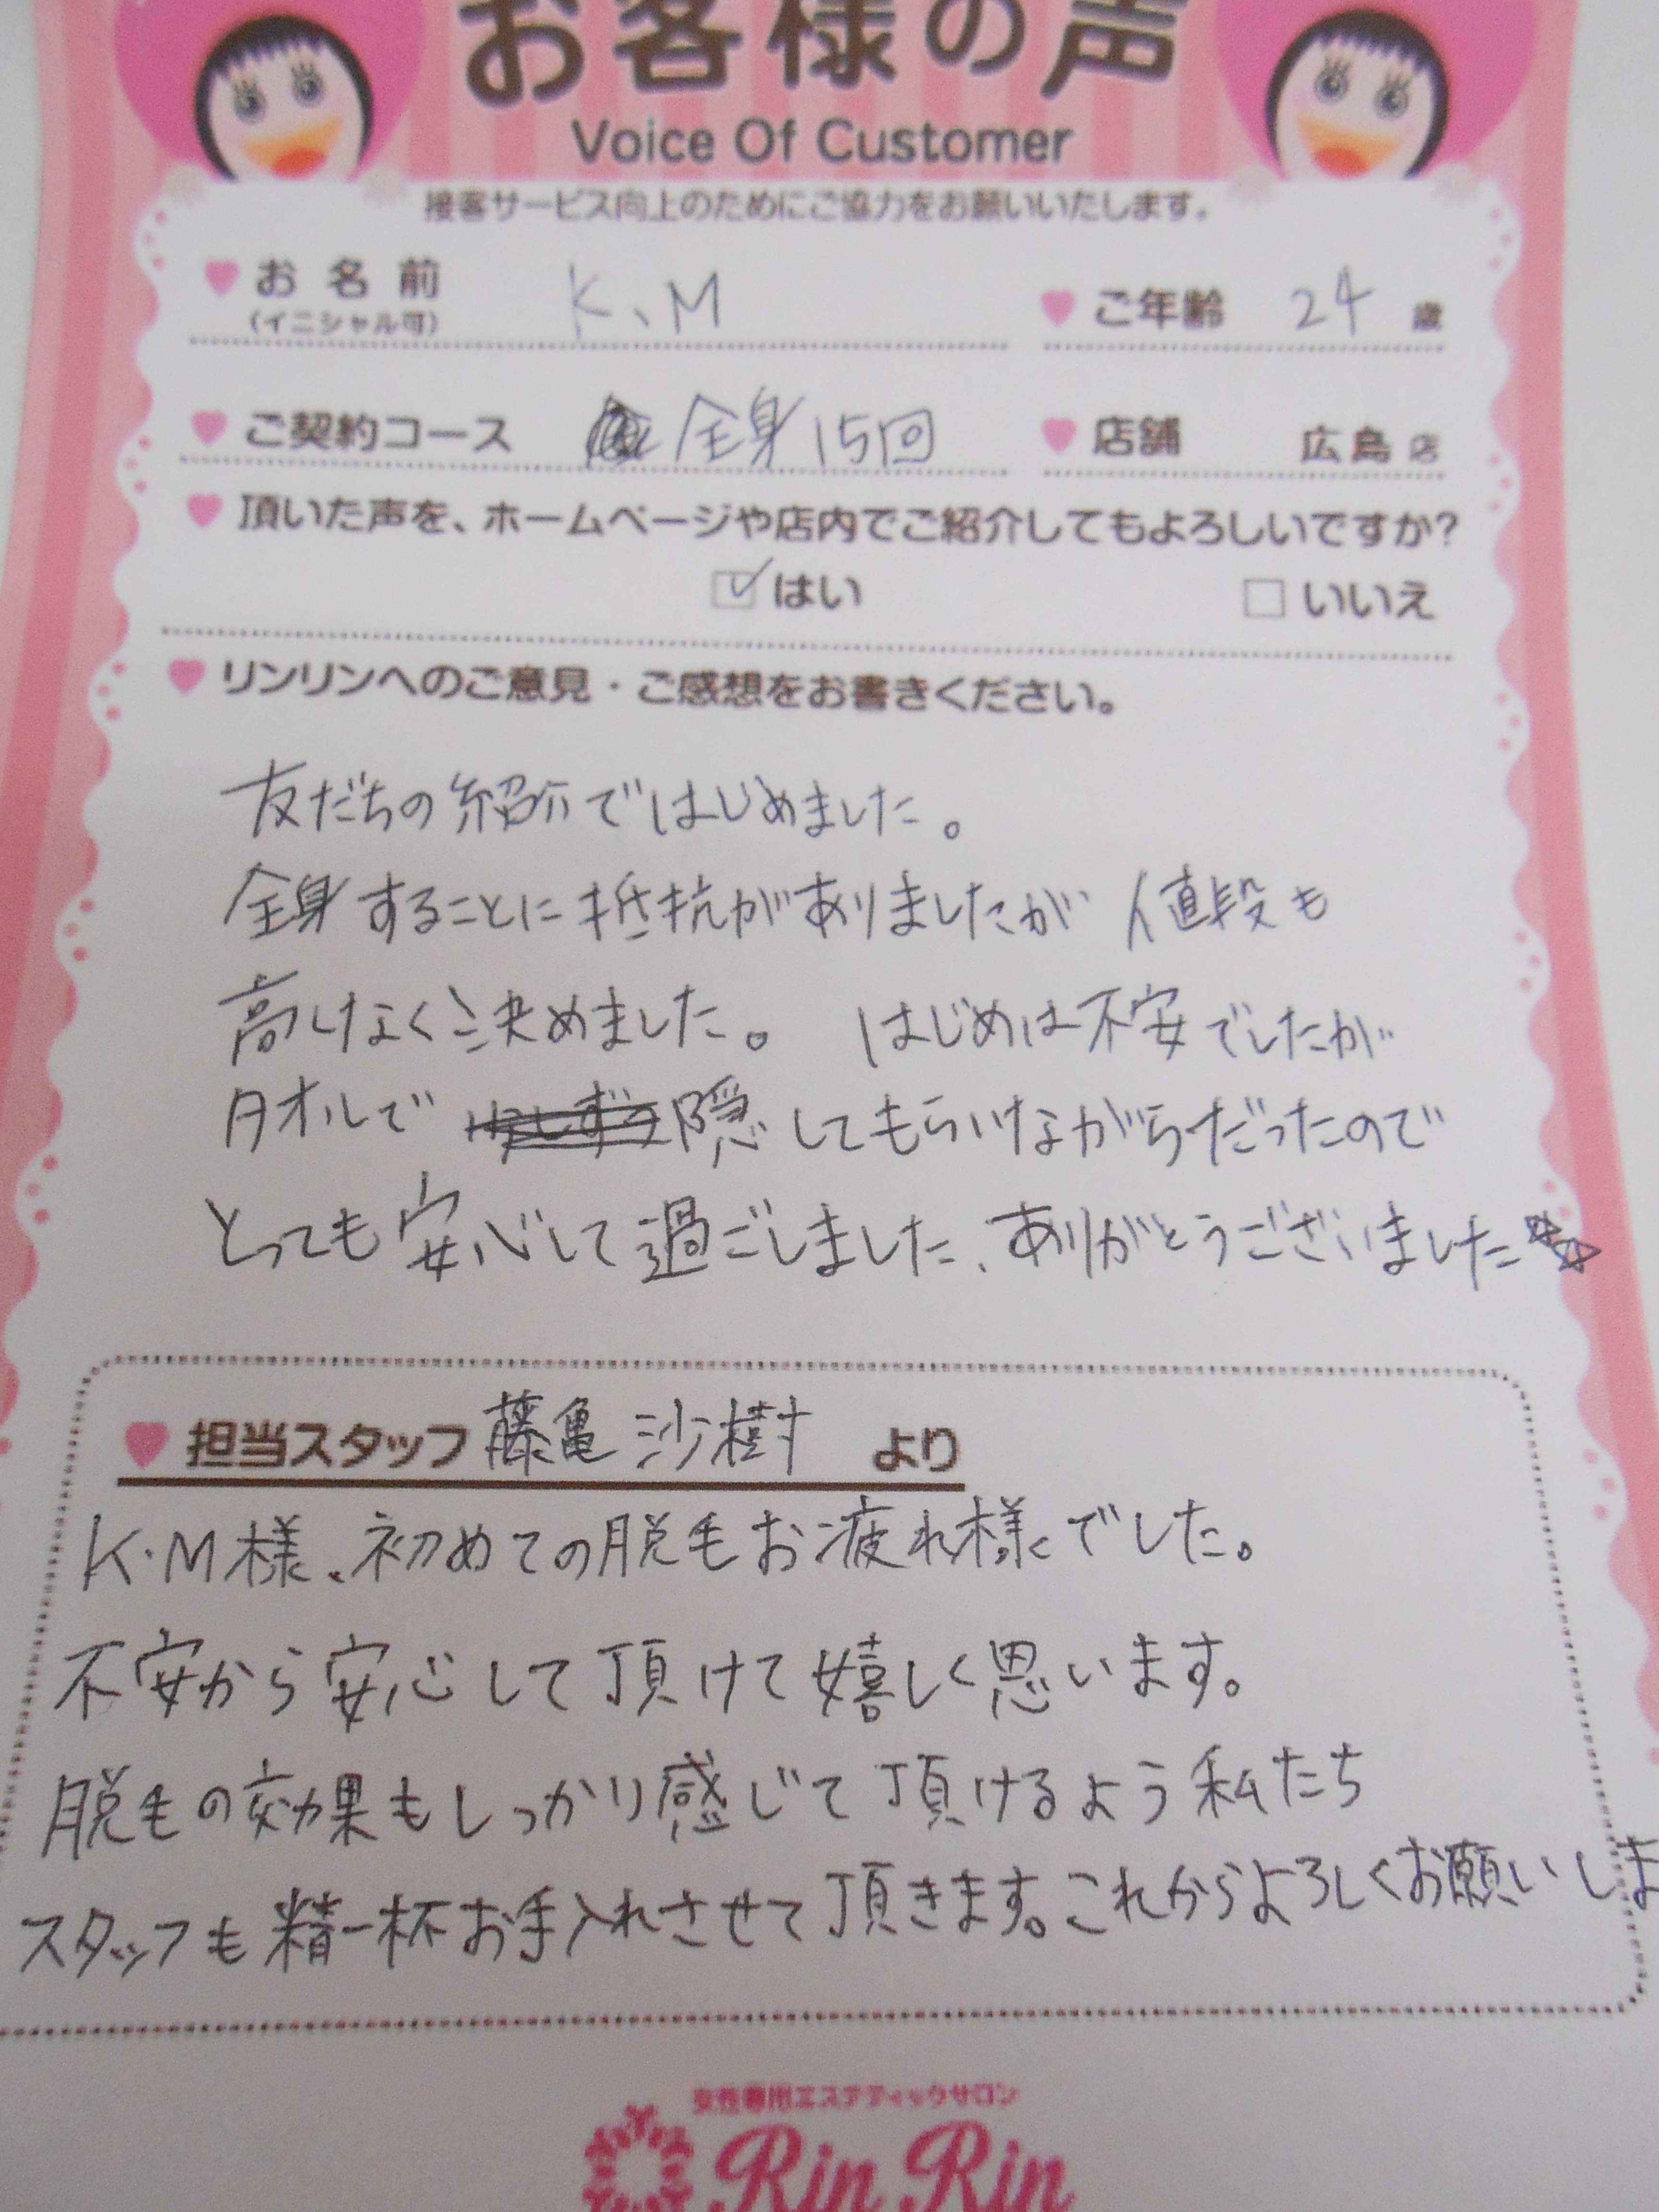 お客様の声
Voice Of Customer
接客サービス向上のためにご協力をお願いいたします。
お名前 K、M ご年齢 24 歳
(イニシャル可)
ご契約コース 全身15回 店舗 広島店
頂いた声を、ホームページや店内でご紹介してもよろしいですか?
☑はい □いいえ
リンリンへのご意見・ご感想をお書きください。
友だちの紹介ではじめました。
全身することに抵抗がありましたが 値段も
高くなく決めました。 はじめは不安でしたが
タオルで 隠してもらいながらだったので
とっても安心して過ごしました、ありがとうございました☆
担当スタッフ 藤亀 沙樹 より
K・M様、初めての脱毛お疲れ様でした。
不安から安心して頂けて嬉しく思います。
脱毛の効果もしっかり感じて頂けるよう私たち
スタッフも精一杯お手入れさせて頂きます。これからよろしくお願いしま
女性専用エステティックサロン
Rin Rin